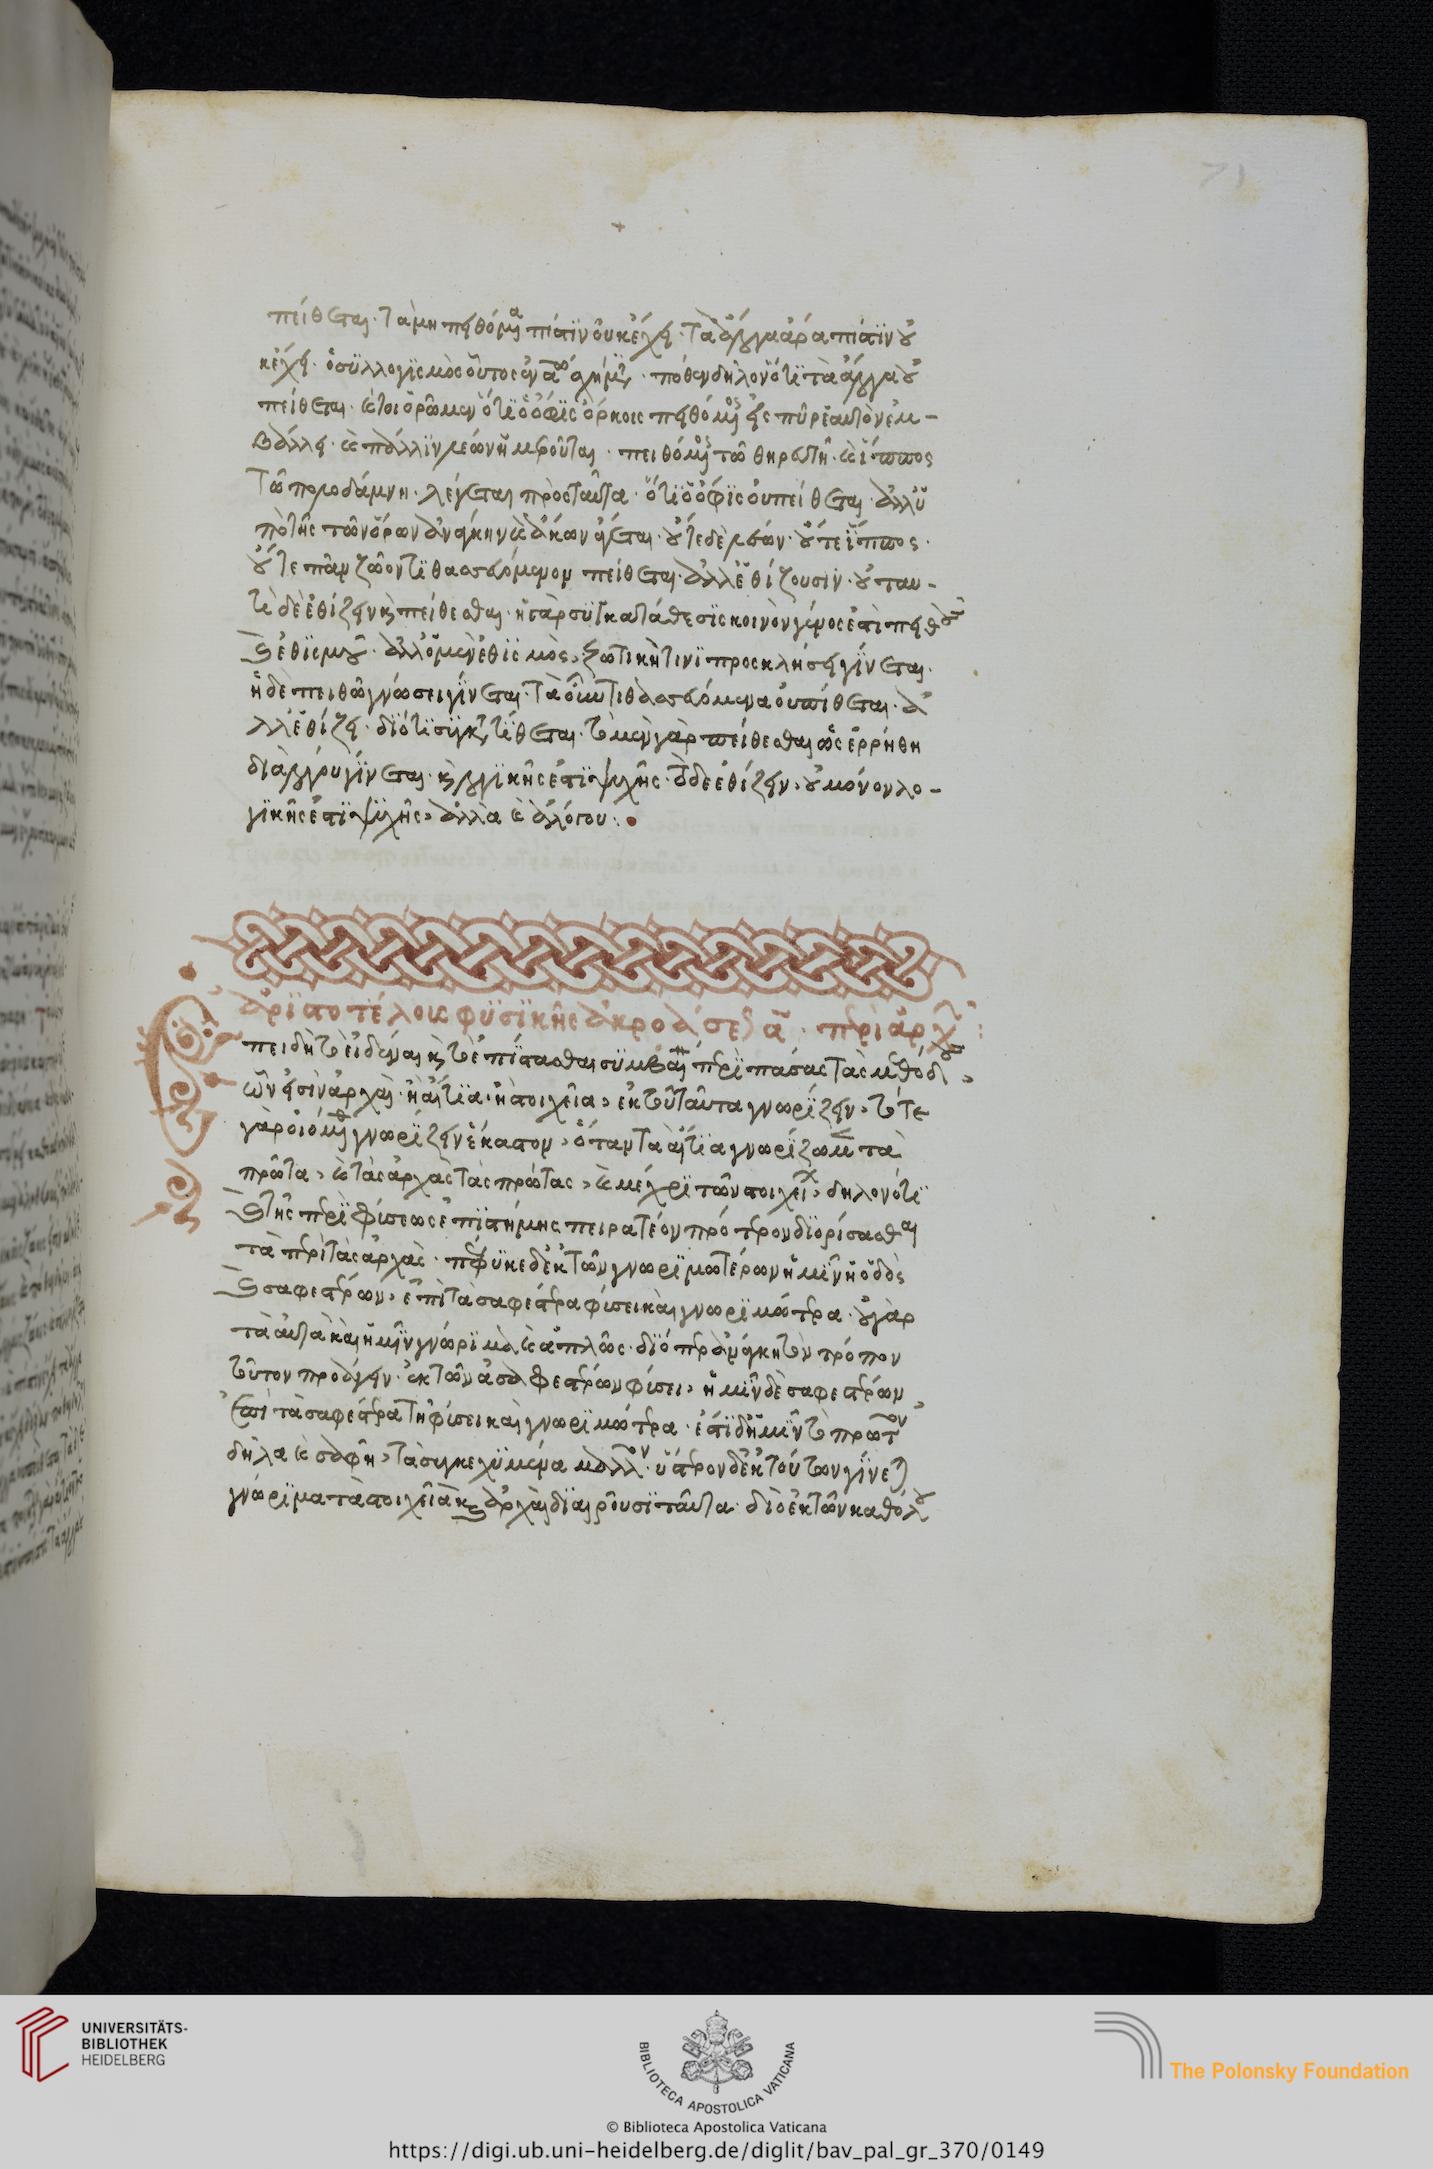 71
πείθεται· τὰ μὴ πειθόμενα πίστιν οὐκ ἔχει· τὰ ἄλογα ἄρα πίστιν οὐ
κ ἔχει· ὁ συλλογισμὸς οὗτος ἐν αω σχήματι· πόθεν δῆλον ὅτι τὰ ἄλογα οὐ
πείθεται· καίτοι ὁρῶμεν ὅτι ὁ ὄφις ὅρκοις πειθόμενος εἰς πῦρ ἑαυτὸν ἐμ-
βάλλει· καὶ πάλιν λέων ἡμεροῦται· πειθόμενος τῶ θηρευτῆ· καὶ ἵππος
τῶ πολοδάμνη· λέγεται πρὸς ταῦτα· ὅτι ὁ ὄφις οὐ πείθεται· ἀλλ' ὑ
πὸ τῆς τῶν ὅρκων ἀνάγκην καὶ ἄκων ἕλκεται· οὔτε δὲ λέων· οὔτε ἵππος·
οὔτε πᾶν ζῶον τιθασευόμενον πείθεται· ἀλλ' ἐθίζουσιν· οὐ ταυ-
τὸ δὲ ἐθίζειν καὶ πείθεσθαι· ἡ γὰρ συγκατάθεσις κοινὸν γένος ἐστὶ πειθοῦς
καὶ ἐθισμοῦ· ἀλλ' ὁ μὲν ἐθισμὸς, ζωτικῆ τινι προσκλήσει γίνεται·
ἡ δὲ πειθὼ γνώσει γίνεται· τὰ οὖν τιθασευόμενα οὐ πείθεται· ἀ
λλ' ἐθίζει· διότι συγκατατίθεται· τὸ μὲν γὰρ πείθεσθαι ὡς ἐρρήθη
διὰ λόγου γίνεται· καὶ λογικῆς ἐστὶ ψυχῆς· τὸ δὲ ἐθίζειν, οὐ μόνον λο-
γικῆς ἐστὶ ψυχῆς, ἀλλὰ καὶ ἀλόγου:
ἀριστοτέλους φυσικῆς ἀκροάσεως α· περὶ ἀρχῶν:
Επειδὴ τὸ εἰδέναι καὶ τὸ ἐπίστασθαι συμβαίνει περὶ πάσας τὰς μεθόδους,
ὧν εἰσὶν ἀρχαὶ· ἢ αἴτια· ἢ στοιχεῖα, ἐκ τοῦ ταῦτα γνωρίζειν, τότε
γὰρ οἰόμεθα γνωρίζειν ἕκαστον, ὅταν τὰ αἴτια γνωρίζωμεν τὰ
πρῶτα, καὶ τὰς ἀρχὰς τὰς πρώτας, καὶ μέχρι τῶν στοιχείων, δηλονότι
καὶ τῆς περὶ φύσεως ἐπιστήμης πειρατέον πρότερον διορίσασθαι
τὰ περὶ τὰς ἀρχὰς· πέφυκε δὲ ἐκ τῶν γνωριμωτέρων ἡμῖν ἡ ὁδὸς
καὶ σαφεστέρων, ἐπὶ τὰ σαφέστερα φύσει καὶ γνωριμώτερα· οὐ γὰρ
ταὐτὰ καὶ ἡμῖν γνώριμα καὶ ἁπλῶς· διόπερ ἀνάγκη τὸν τρόπον
τοῦτον προάγειν· ἐκ τῶν ἀσαφεστέρων φύσει, ἡμῖν δὲ σαφεστέρων,
ἐπὶ τὰ σαφέστερα τῆ φύσει καὶ γνωριμώτερα· ἐστὶ δ' ἡμῖν τὸ πρῶτον
δῆλα καὶ σαφῆ, τὰ συγκεχυμένα μᾶλλον· ὕστερον δ' ἐκ τούτων γίνεται
γνώριμα τὰ στοιχεῖα καὶ ἀρχαὶ διαιροῦσι ταῦτα· διὸ ἐκ τῶν καθόλου
UNIVERSITÄTS-
BIBLIOTHEK
HEIDELBERG
BIBLIOTECA APOSTOLICA VATICANA
© Biblioteca Apostolica Vaticana
The Polonsky Foundation
https://digi.ub.uni-heidelberg.de/diglit/bav_pal_gr_370/0149